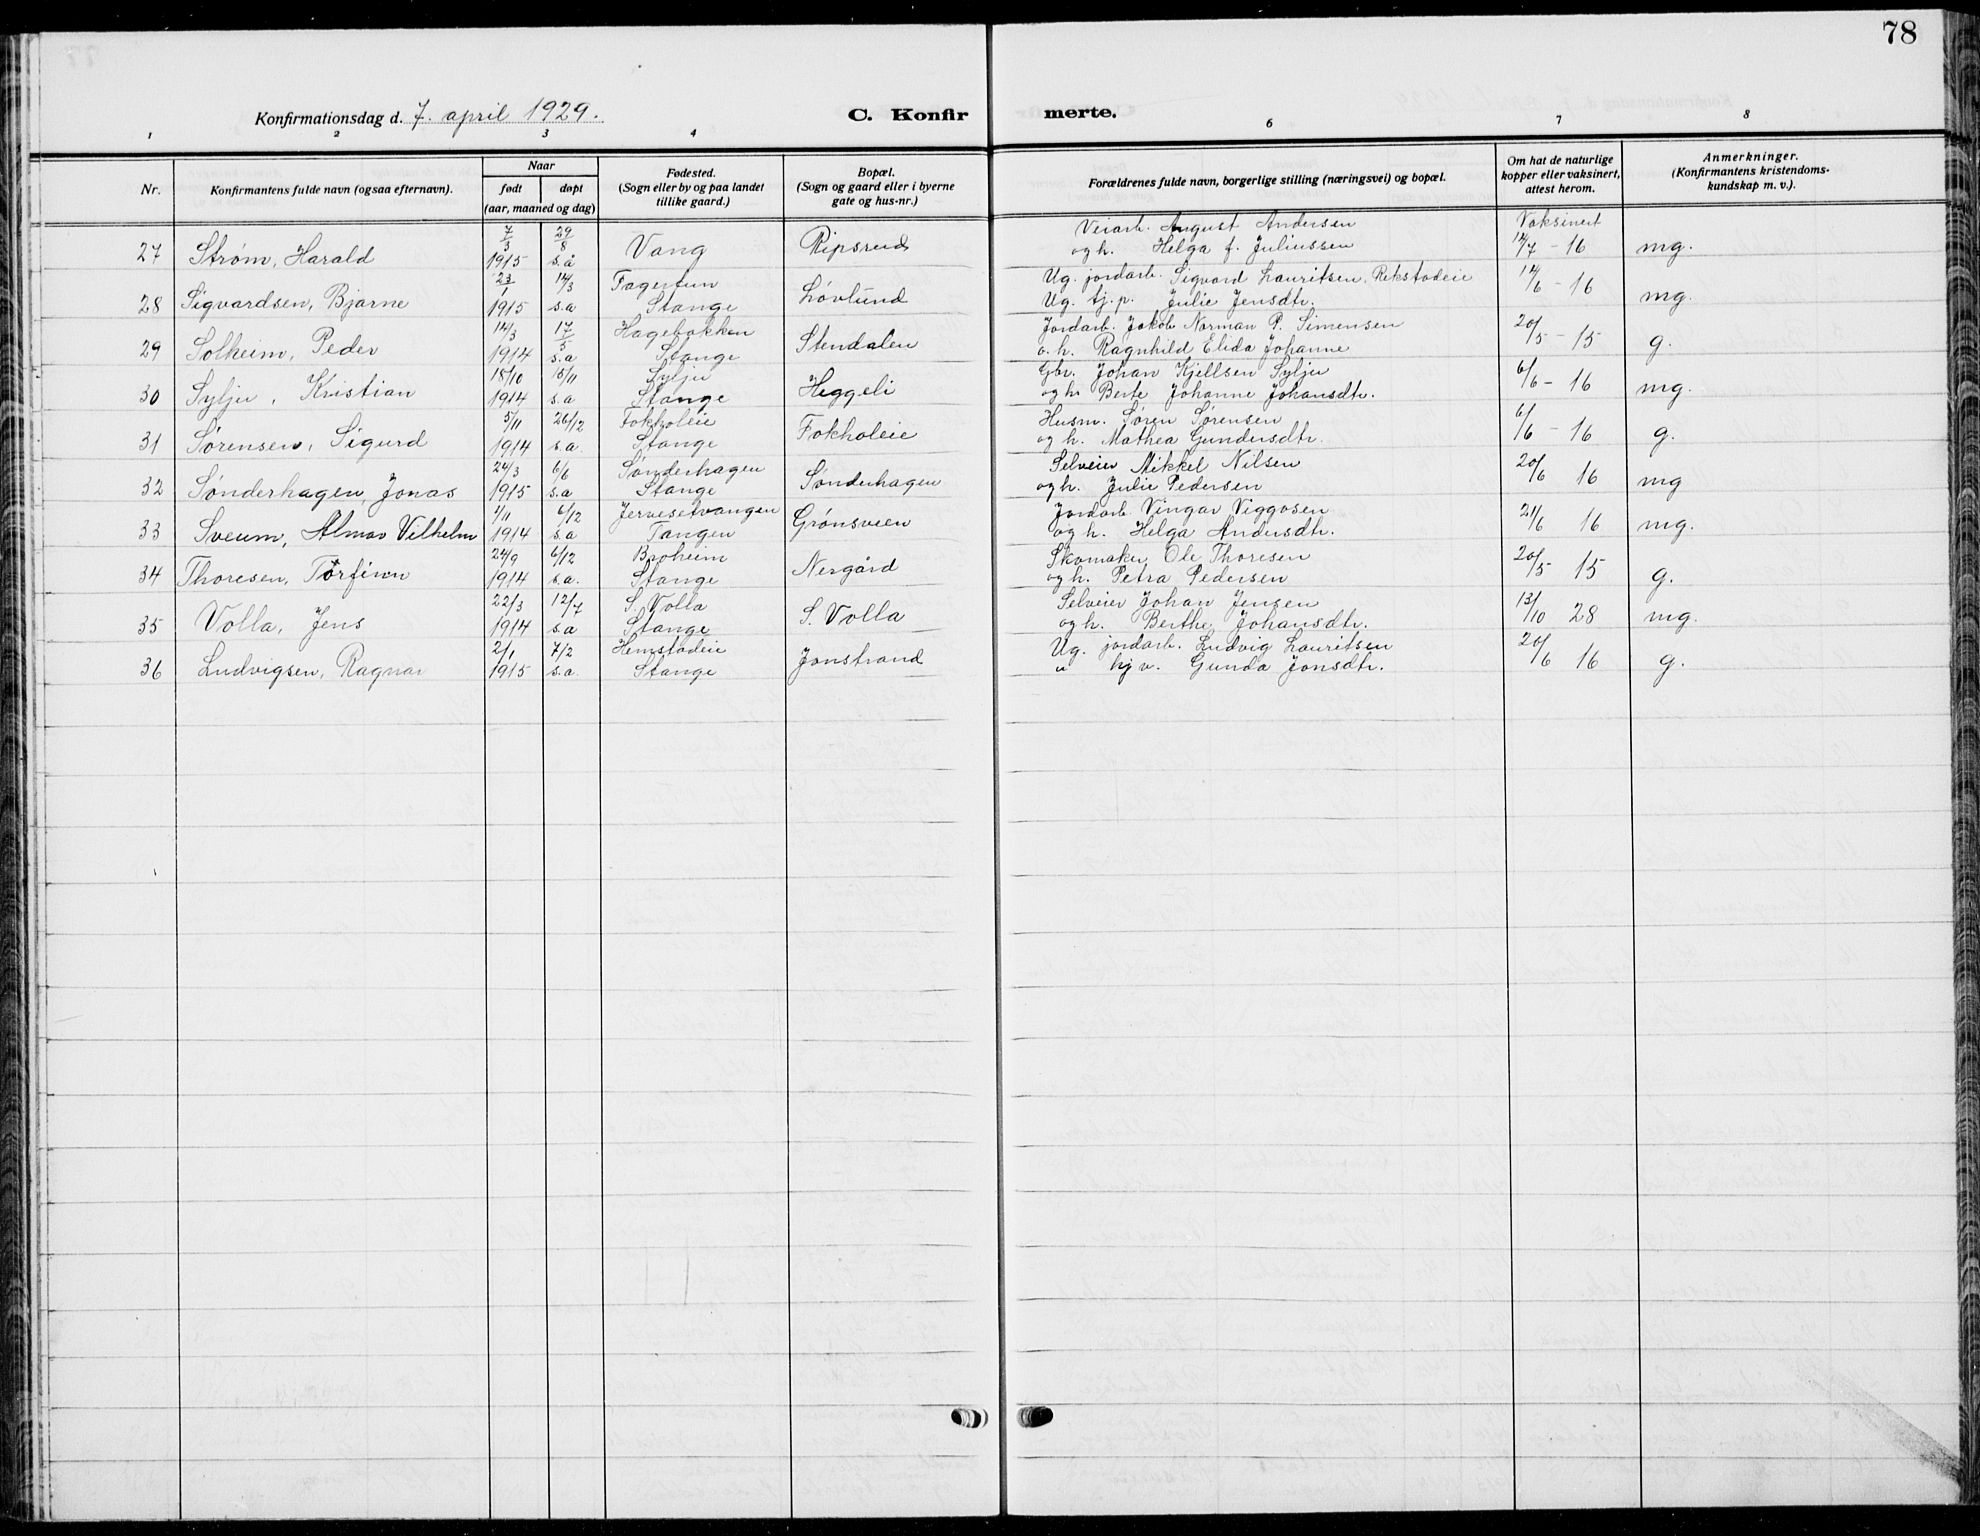 78
Konfirmationsdag d. 7. april 1929.
C. Konfir merte.
1 2 3 4 6 7 8
Nr.
Konfirmantens fulde navn (ogsaa efternavn).
Naar
født døpt
(aar, maaned og dag)
Fødested.
(Sogn eller by og paa landet
tillike gaard.)
Bopæl.
(Sogn og gaard eller i byerne
gate og hus-nr.)
Forældrenes fulde navn, borgerlige stilling (næringsvei) og bopæl.
Om hat de naturlige
kopper eller vaksinert,
attest herom.
Anmerkninger.
(Konfirmantens kristendoms-
kundskap m. v.).
7/3 29/8 Veiarb. August Andersen Vaksinert
27 Strøm, Harald 1915 s.å Vang Ripsrud og h. Helga f. Juliussen 14/7 - 16 mg.
23/1 14/3 Fagertun Ug. jordarb. Sigvard Lauritsen, Rekstadeie 14/6 - 16
28 Sigvardsen, Bjarne 1915 s.a Stange Løvlund Ug. tj.p. Julie Jensdtr. mg.
14/3 17/5 Hagebakken Jordarb. Jakob Norman P. Simensen 20/5 - 15
29 Solheim, Peder 1914 s.a Stange Stendalen o. h. Ragnhild Elida Johanne g.
18/10 15/11 Sylju Gbr. Johan Kjellsen Sylju 6/6 - 16
30 Sylju, Kristian 1914 s.a Stange Heggeli og h. Berte Johanne Johansdtr. mg.
5/11 26/12 Fokholeie Husm. Søren Sørensen 6/6 - 16
31 Sørensen, Sigurd 1914 s.a. Stange Fokholeie og h. Mathea Gundersdtr. g.
24/3 6/6 Sønderhagen Selveier Mikkel Nilsen 20/6 16
32 Sønderhagen, Jonas 1915 s.a Stange Sønderhagen og h. Julie Pedersen mg
1/11 6/12 Jervesetvangen Jordarb. Vingar Viggosen 21/6 16
33 Sveum, Almar Vilhelm 1914 s.a Tangen Grønsveen og h. Helga Andersdtr. mg.
24/9 6/12 Broheim Skomaker Ole Thoresen 20/5 15
34 Thoresen, Torfinn 1914 s.a. Stange Nergård og h. Petra Pedersen g.
22/3 12/7 S. Volla Selveier Johan Jensen 13/10 28
35 Volla, Jens 1914 s.a Stange S. Volla og h. Berthe Johansdtr. mg.
2/1 7/2 Hemstadeie Ug. jordarb. Ludvig Lauritsen 20/6 16
36 Ludvigsen, Ragnar 1915 s.a. Stange Jonstrand " hj v. Gunda Jonsdtr. g.